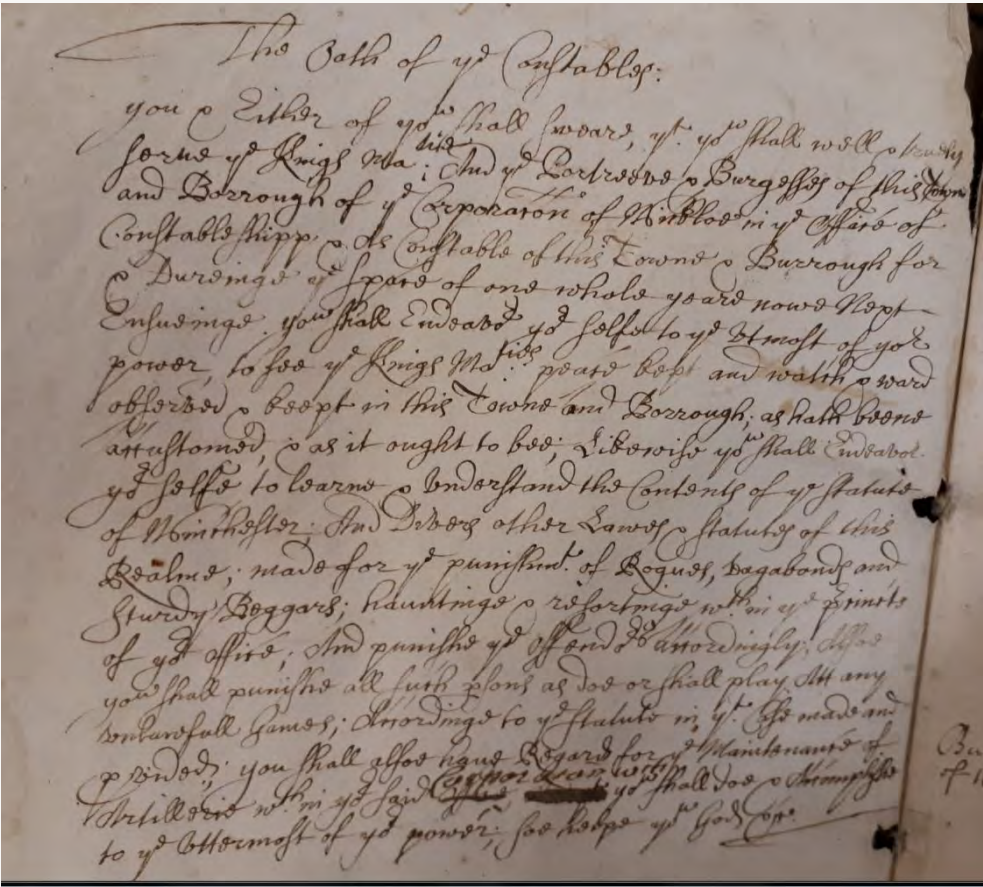 The Oath of ye Constables:
you & Either of you shall sweare, yt. you shall well & truely
serve ye Kings Matie: And ye Portreeve & Burgesses of this Towne
and Borrough of ye Corporacon of in ye Office of
Constableshipp & As Constable of this Towne & Burrough for
& Dureinge ye space of one whole yeare nowe Next
Ensueinge you shall Endeavor yor selfe to ye Vtmost of yor
power, to see ye Kings Maties peace kept and watch & ward
observed & keept in this Towne and Borrough; as hath beene
accustomed, & as it ought to bee; Likewise you shall Endeavor
yor selfe to learne & Vnderstand the Contents of ye statute
of Winchester; And Divers other Lawes & statutes of this
Realme; made for ye punishmt. of Rogues, Vagabonds and
Sturdy Beggars; hauntinge & resortinge wth in ye
of yor office; And punishe ye offendors accordingly; Alsoe
you shall punishe all such psons as doe or shall play Att any
vnlawfull Games; Accordinge to ye statute in yt. Case made and
pvided; you shall alsoe have Regard for ye Maintenance of
Artillerie wth in ye said Corporacon ys shall doe & Accomplishe
to ye Vttermost of yor power; soe helpe you God &c.
Bu
of